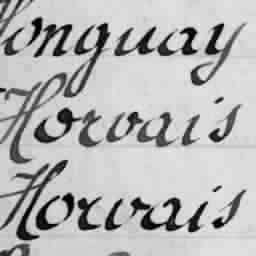 onguay
Horvais
Horvais